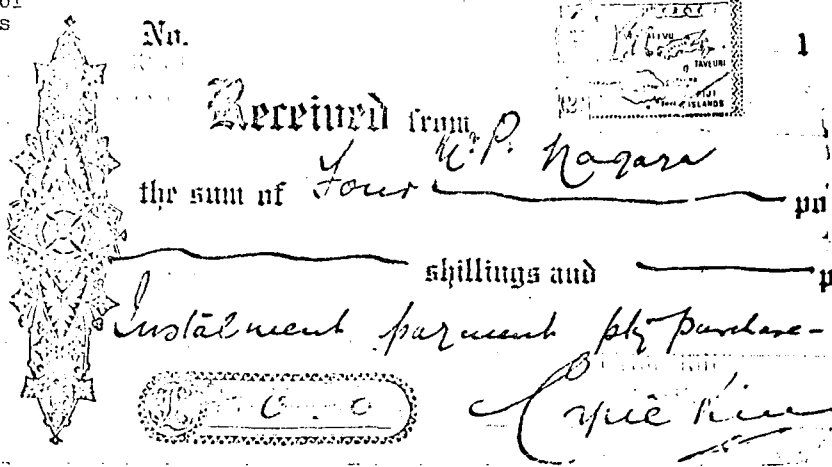 of
s
No.
1
TAVEUNI
FIJI
ISLANDS
Received from
Mr. P. Nagara
the sum of Four
shillings and
Instalment payment pty purchase-
0 . 0